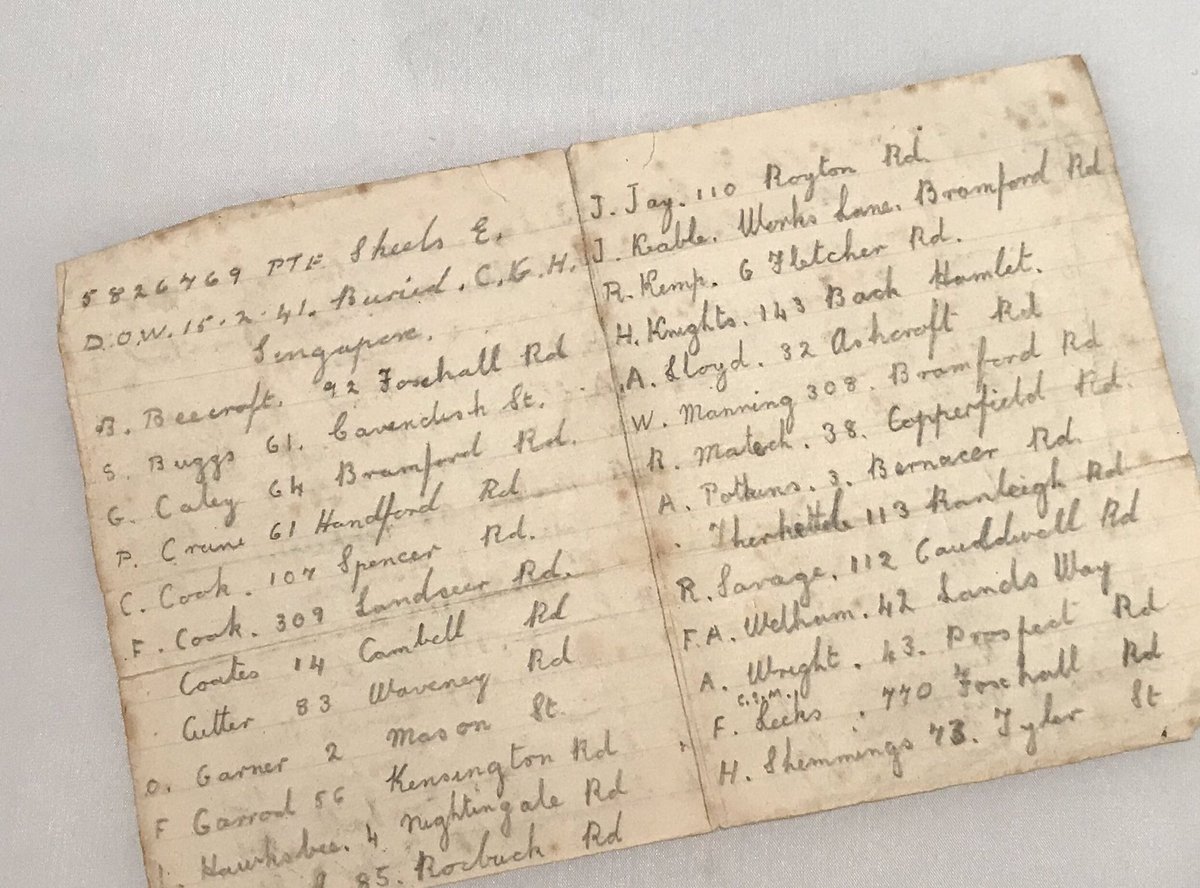 5826769 PTE Sheels E.
D.O.W. 15.2.41. Buried. C.G.H.
Singapore.
B. Beecroft. 92 Foxhall Rd
S. Buggs 61. Cavendish St.
G. Caley 64 Bramford Rd.
P. Crane 61 Handford Rd
C. Cook. 107 Spencer Rd.
F. Cook. 309 Landseer Rd.
Coates 14 Cambell Rd
Cutter 83 Waveney Rd
O. Garner 2 Mason St.
F Garrod 56 Kensington Rd
Hawksbee. 4 Nightingale Rd
85. Roebuck Rd
J. Jay. 110 Royton Rd.
J. Keable. Works Lane. Bramford Rd
R. Kemp. 6 Fletcher Rd.
H. Knights. 143 Back Hamlet.
A. Lloyd. 32 Ashcroft Rd
W. Manning 308. Bramford Rd
R. Match. 38. Copperfield Rd.
A. Potkins. 3. Bernacer Rd.
113 Ranleigh Rd
R. Savage. 112 Cauldwell Rd
F.A. Welham. 42 Lands Way
A. Wright. 43. Prospect Rd
C.S.M.
F. Leeks. 770 Foxhall Rd
H. Shemmings 73. Tyler St